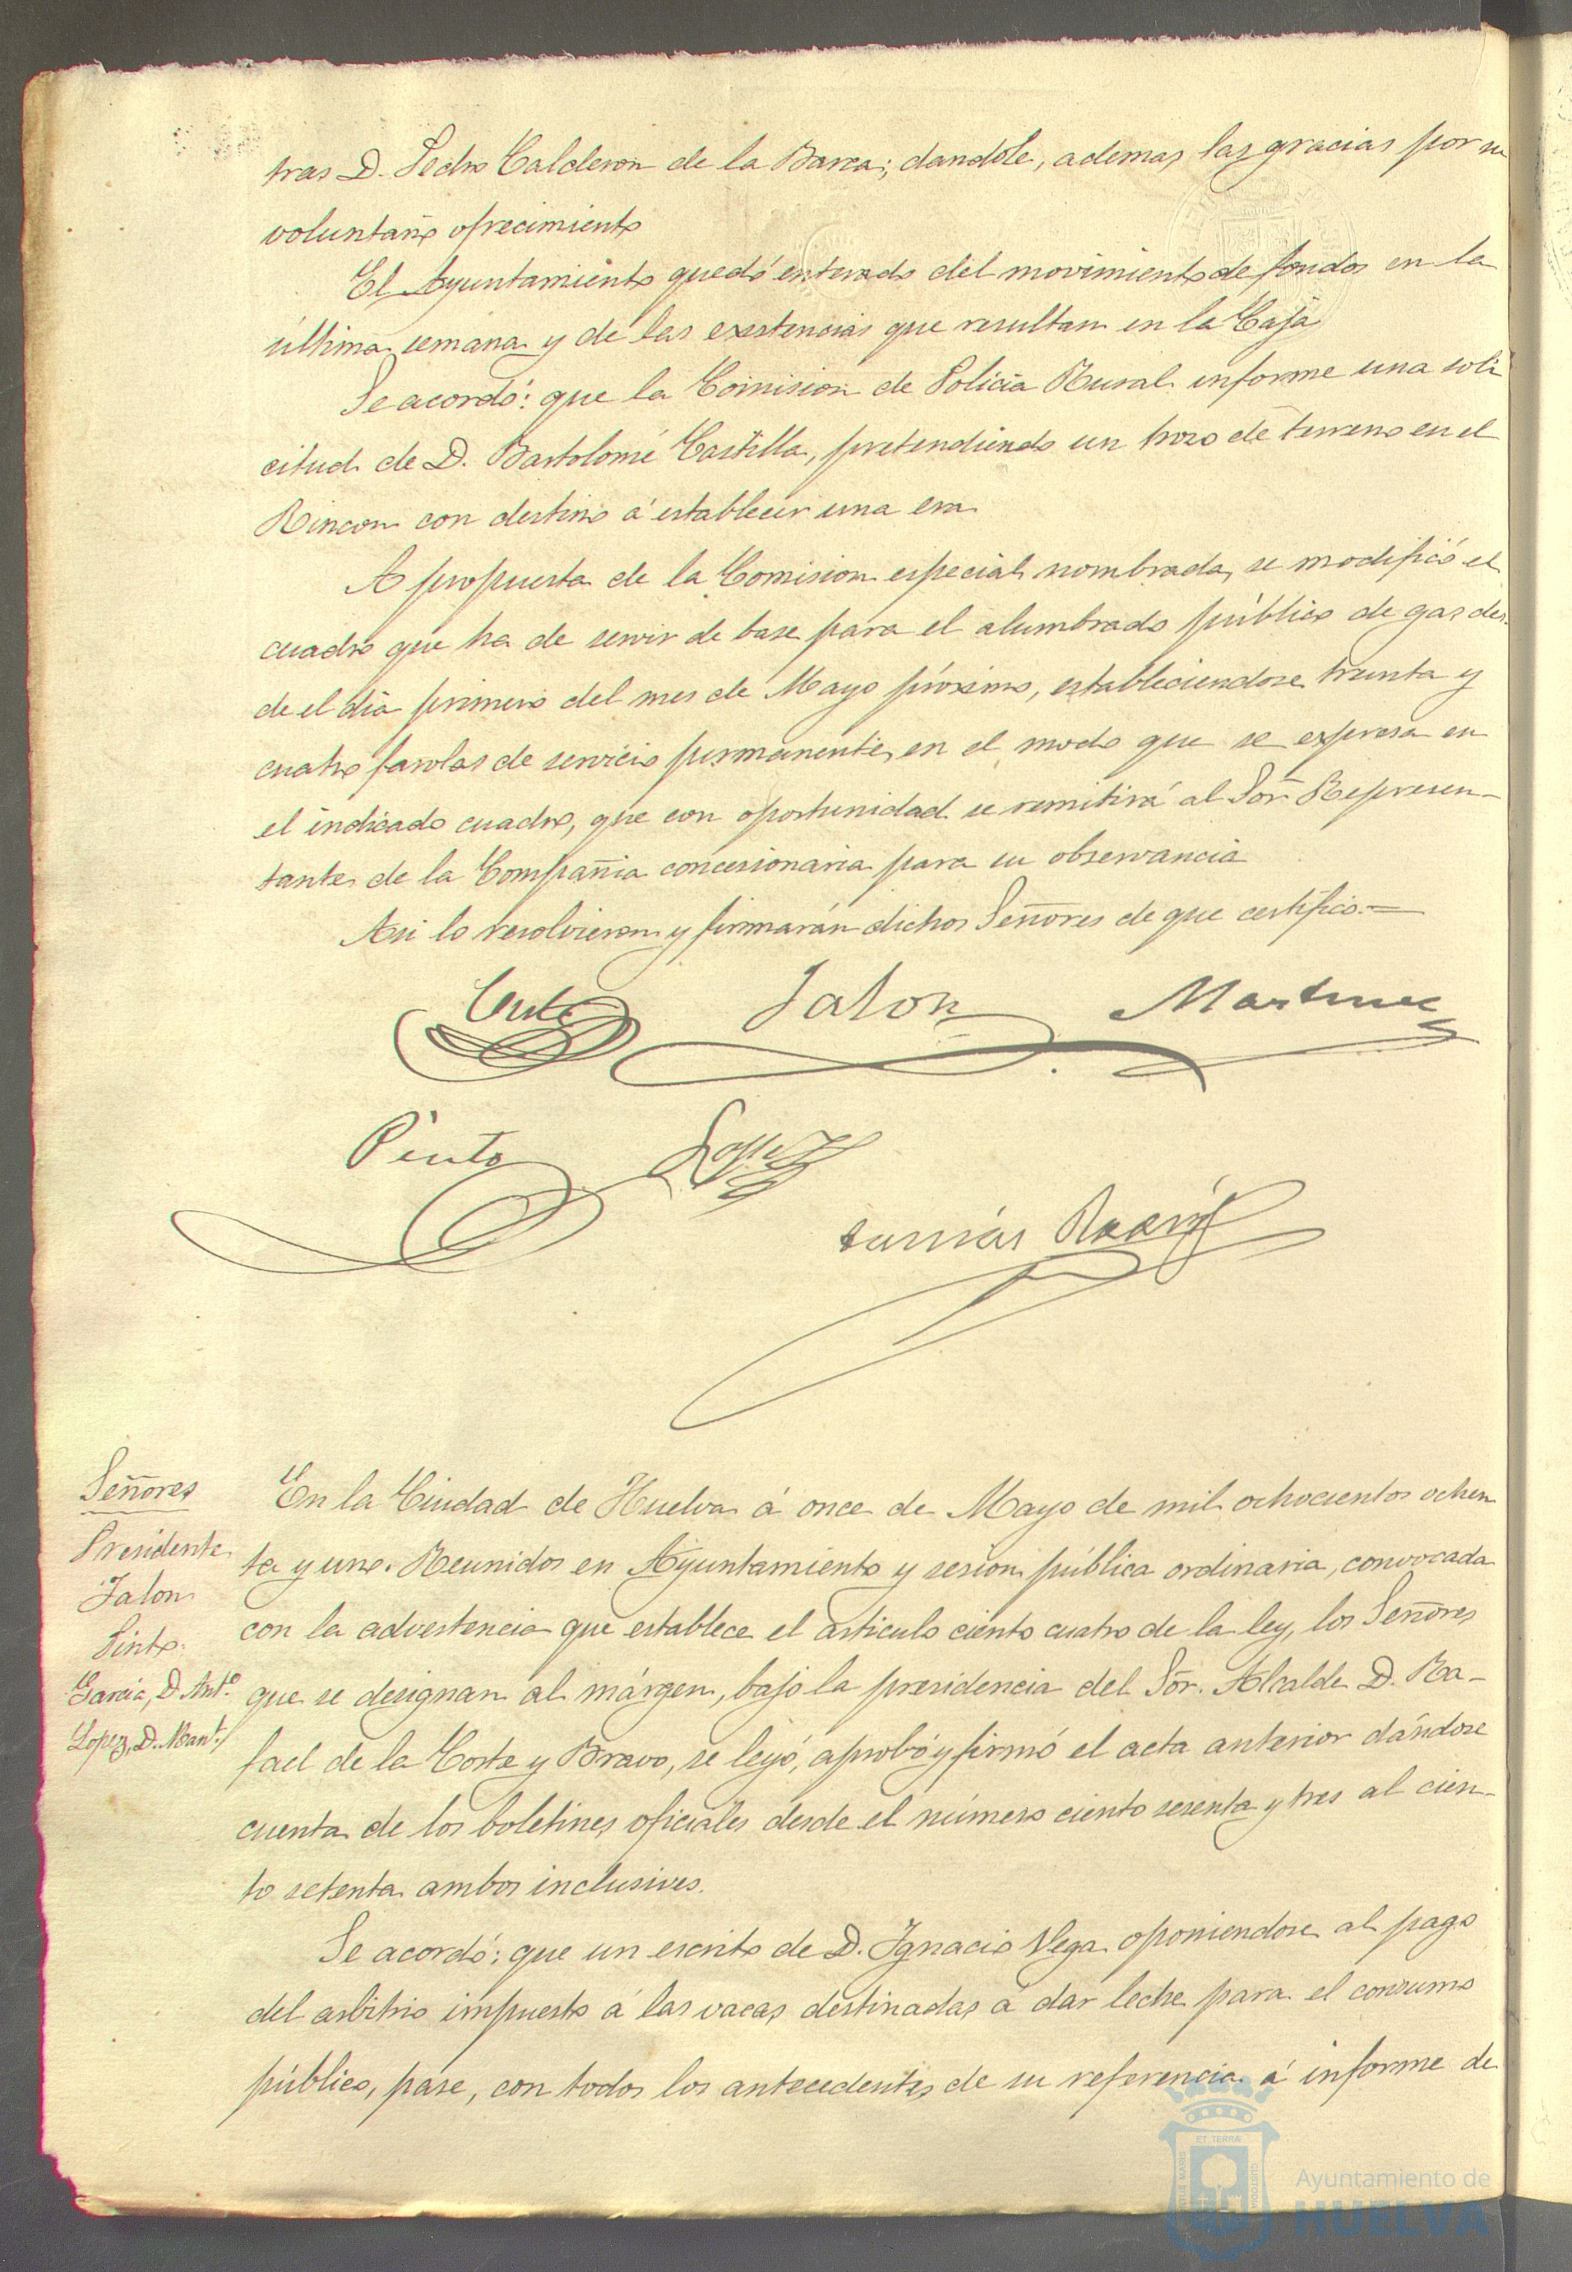 tras D. Pedro Calderon de la Barca; dandole, ademas, las gracias por su
voluntario ofrecimiento
El Ayuntamiento quedó enterado del movimiento de fondos en la
última semana y de las existencias que resultan en la Caja
Se acordó: que la Comision de Policia Rural informe una soli
citud de D. Bartolomé Castilla, pretendiendo un trozo de terreno en el
Rincon con destino á establecer una era
A propuesta de la Comision especial nombrada, se modificó el
cuadro que ha de servir de base para el alumbrado público de gas des-
de el dia primero del mes de Mayo próximo, estableciendose treinta y
cuatro farolas de servicio permanente, en el modo que se expresa en
el indicado cuadro, que con oportunidad se remitirá al Sor. Represen-
tante de la Compañia concesionaria para su observancia
Asi lo resolvieron y firmarán dichos Señores de que certifico.=
Corte Jalon Martinez
Pinto Lopez
Señores
Presidente
Jalon
Pinto.
Garcia, D. Antº.
Lopez, D. Manl.
En la Ciudad de Huelva á once de Mayo de mil ochocientos ochen
ta y uno. Reunidos en Ayuntamiento y sesion pública ordinaria, convocada
con la advertencia que establece el articulo ciento cuatro de la ley, los Señores
que se designan al márgen, bajo la presidencia del Sor. Alcalde D. Ra-
fael de la Corte y Bravo, se leyó, aprobó y firmó el acta anterior dándose
cuenta de los boletines oficiales desde el número ciento sesenta y tres al cien-
to setenta ambos inclusives.
Se acordó: que un escrito de D. Ignacio Vega oponiendose al pago
del arbitrio impuesto á las vacas destinadas á dar leche para el consumo
público, pase, con todos los antecedentes de su referencia á informe de
ET TERRA
Ayuntamiento de
HUELVA